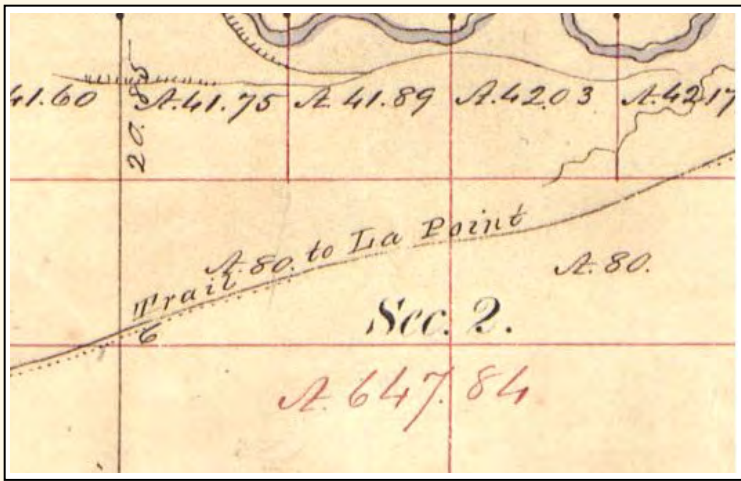 41.60 A.41.75 A 41.89 A.42.03 A.42.17
20.85
Trail to La Point
A.80. A.80.
6
Sec. 2.
A.647.84